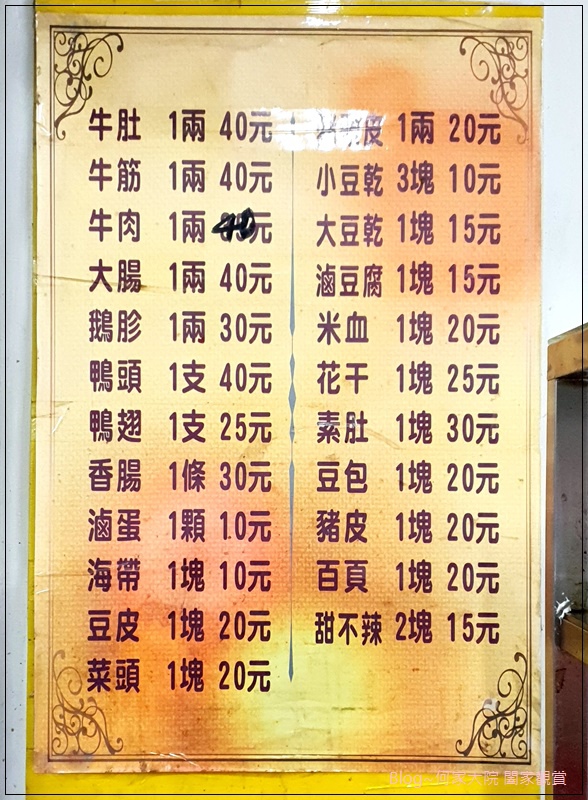 牛肚 1兩 40元
牛筋 1兩 40元
牛肉 1兩 元
大腸 1兩 40元
鵝胗 1兩 30元
鴨頭 1支 40元
鴨翅 1支 25元
香腸 1條 30元
滷蛋 1顆 10元
海帶 1塊 10元
豆皮 1塊 20元
菜頭 1塊 20元
皮 1兩 20元
小豆乾 3塊 10元
大豆乾 1塊 15元
滷豆腐 1塊 15元
米血 1塊 20元
花干 1塊 25元
素肚 1塊 30元
豆包 1塊 20元
豬皮 1塊 20元
百頁 1塊 20元
甜不辣 2塊 15元
Blog 何家大院 闔家觀賞